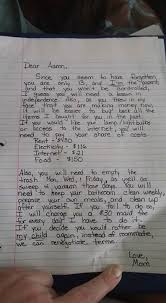 Dear Aaron,
Since you seem to have forgotten
you are only 13, and I'm the parent
and that you won't be controlled,
I guess you will need a lesson in
independence. Also, as you threw in my
face that you are making money now,
it will be easier to buy back all the
items I bought for you in the past.
If you would like your lamp/lightbulbs
or access to the internet, you will
need to pay your share of costs
Rent - $430
Electricity - $116
Internet - $21
Food - $150
Also, you will need to empty the
trash Mon, Wed, Friday, as well as
sweep & vacuum those days. You will
need to keep your bathroom clean weekly,
prepare your own meals, and clean up
after yourself. If you fail to do so,
I will charge you a $30 maid fee
for every day I have to do it.
If you decide you would rather be
my child again, instead of roommate,
we can renegotiate terms
Love,
Mom